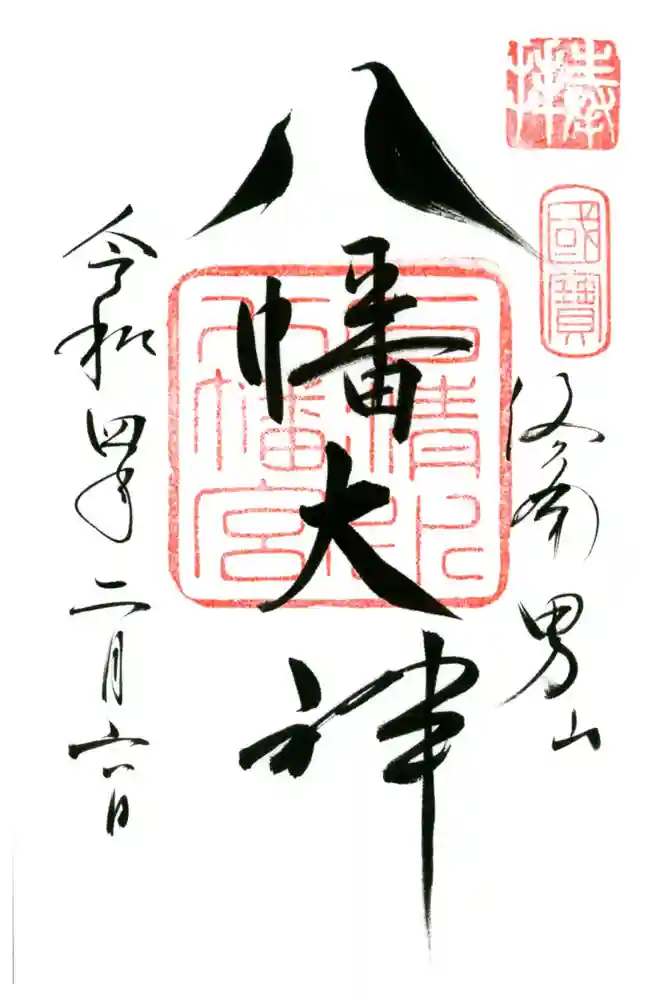 奉拝
國寶
洛南男山
八幡大神
石清水八幡宮
令和四年二月六日